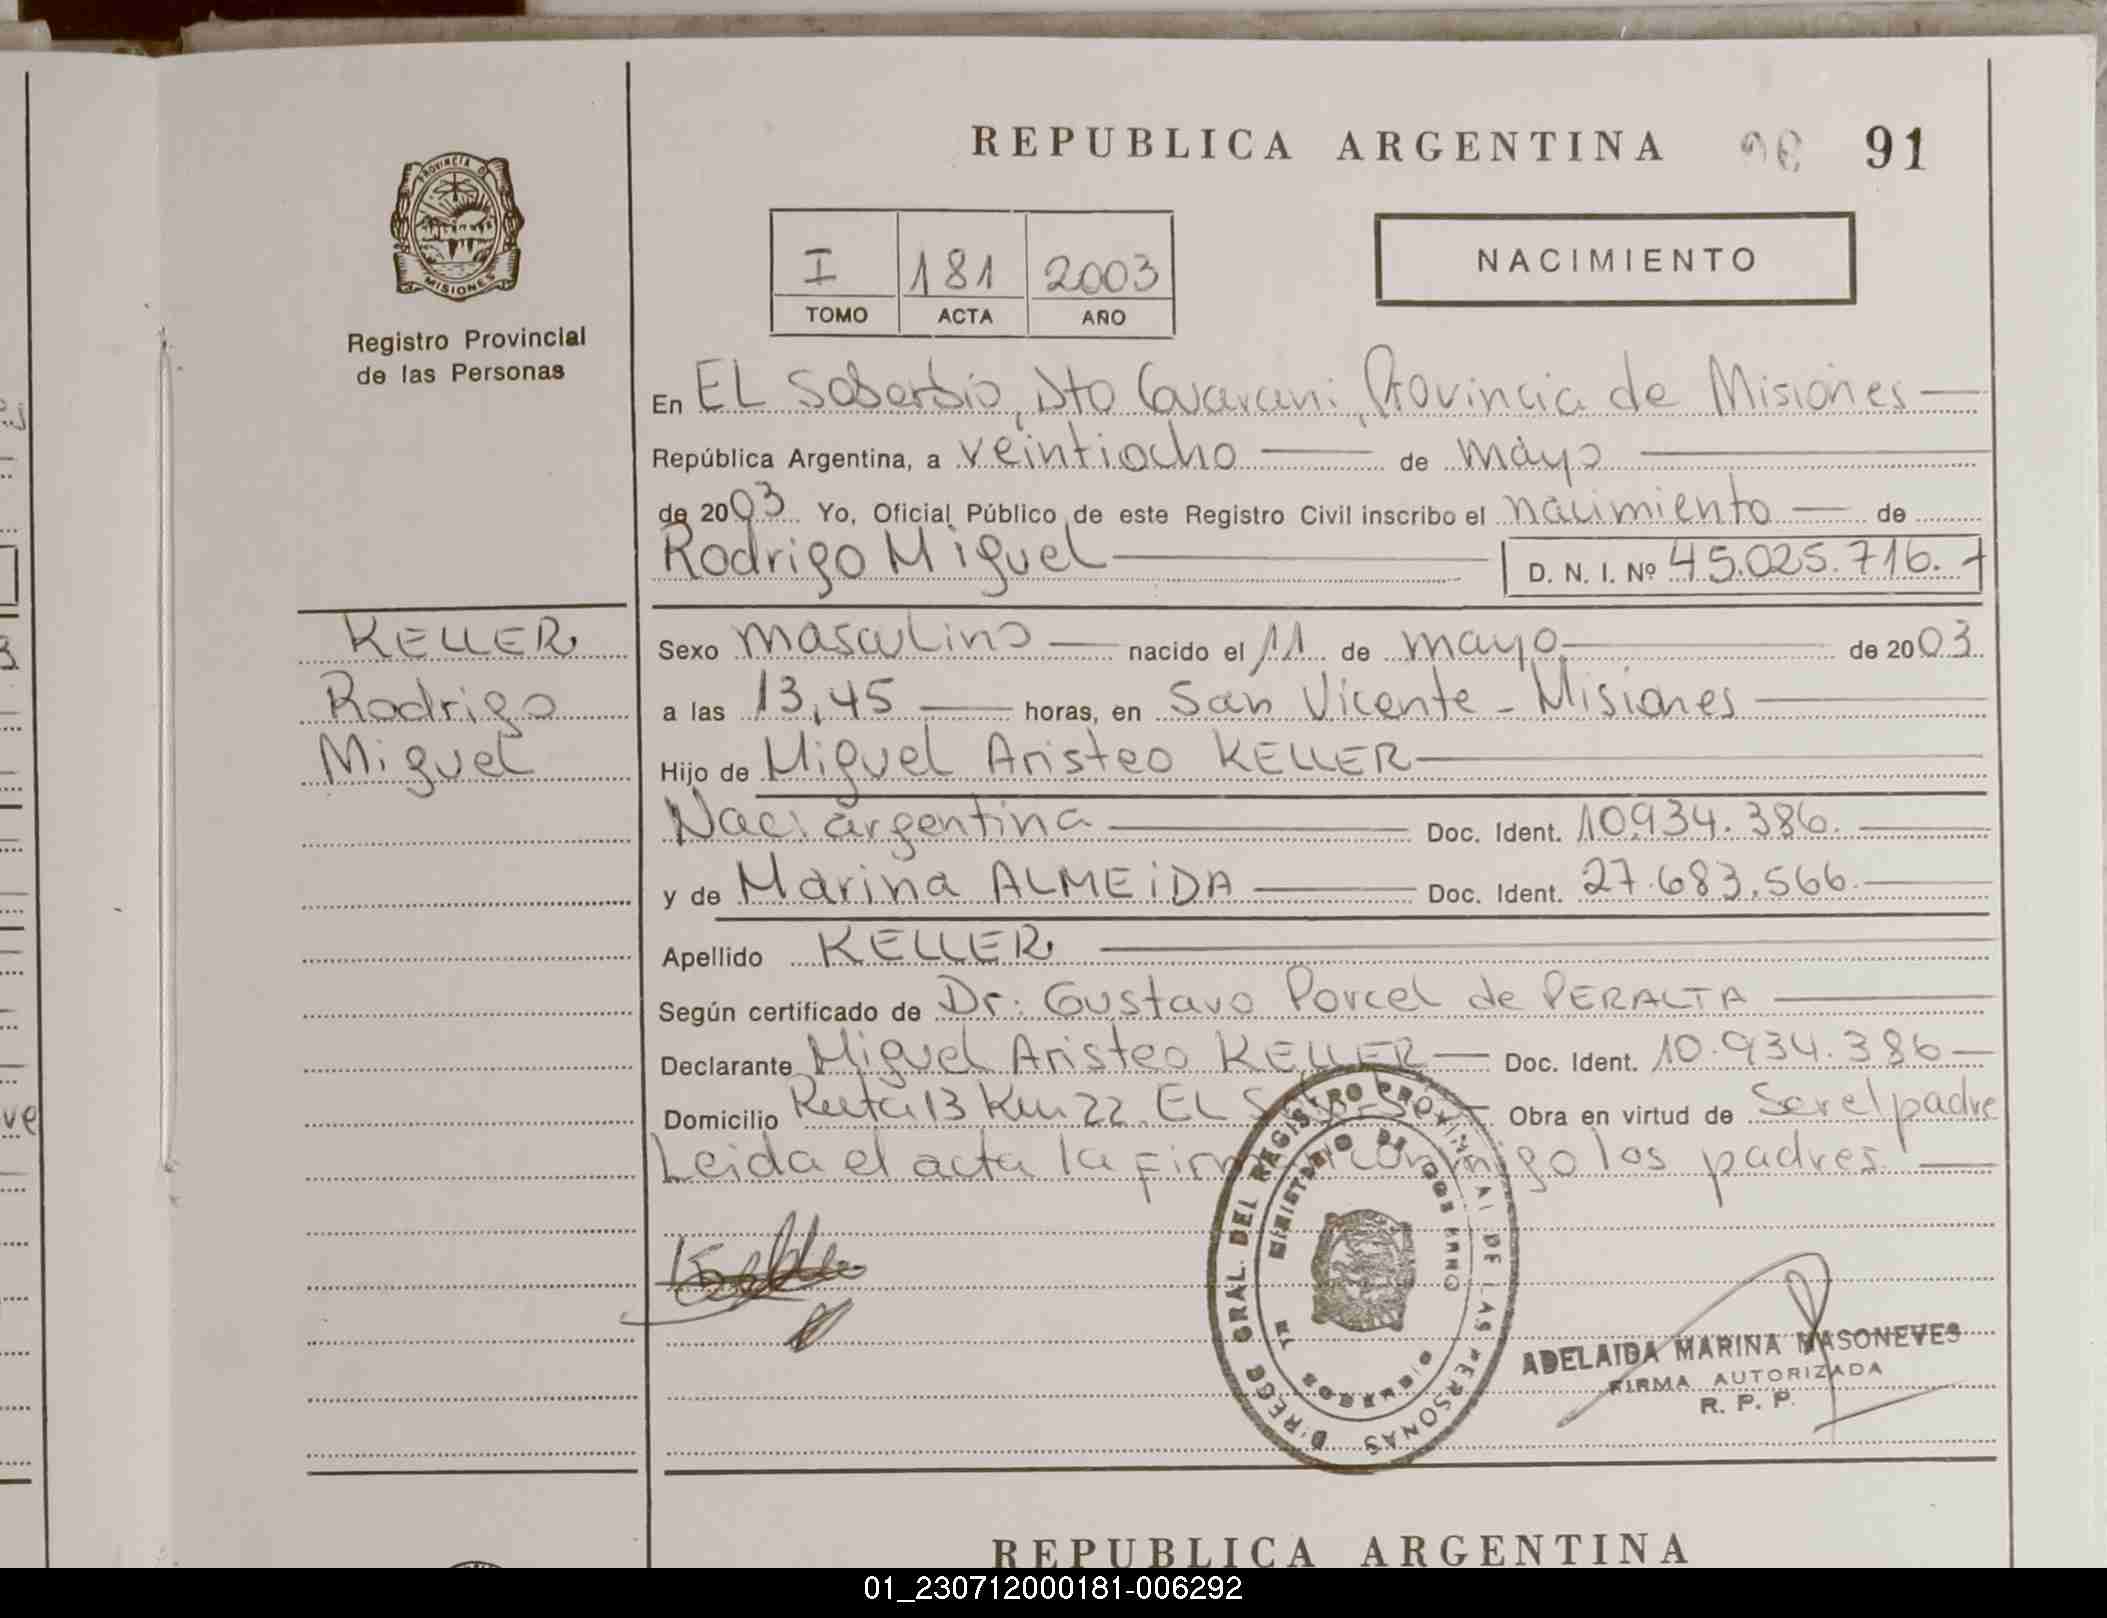 REPUBLICA ARGENTINA 91
PROVINCIA DE
MISIONES
Registro Provincial
de las Personas
I 181 2003
TOMO ACTA AÑO
NACIMIENTO
En EL Soberbio, Dto Guarani, Provincia de Misiones
República Argentina, a veintiocho de mayo
de 2003 Yo, Oficial Público de este Registro Civil inscribo el nacimiento de
Rodrigo Miguel D. N. I. Nº 45.025.716.
KELLER
Rodrigo
Miguel
Sexo masculino nacido el 11 de mayo de 2003
a las 13,45 horas, en San Vicente - Misiones
Hijo de Miguel Aristeo KELLER
Nac: argentina Doc. Ident. 10.934.386.
y de Marina ALMEIDA Doc. Ident. 27.683.566.
Apellido KELLER
Según certificado de Dr: Gustavo Porcel de PERALTA
Declarante Miguel Aristeo KELLER Doc. Ident. 10.934.386
Domicilio Ruta 13 Km 22. EL Obra en virtud de Ser el padre
Leida el acta la conmigo los padres.
DIRECC GRAL. DEL REGISTRO PROVINCIAL DE LAS PERSONAS
MINISTERIO DE GOBIERNO
MISIONES
ADELAIDA MARINA MASONEVES
FIRMA AUTORIZADA
R. P. P.
REPUBLICA ARGENTINA
01_230712000181-006292